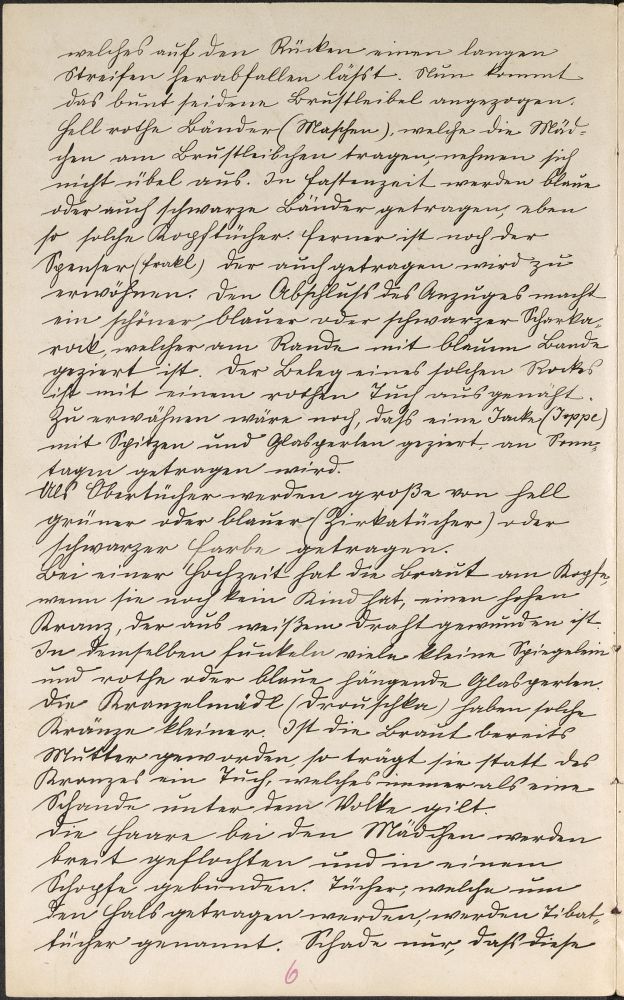 welches auf den Rücken einen langen
Streifen herabfallen läßt. Nun kommt
das bunt seidene Brustleibel angezogen.
Hell rothe Bänder (Maschen), welche die Mäd-
chen am Brustleibchen tragen, nehmen sich
nicht übel aus. In Fastenzeit werden blaue
oder auch schwarze Bänder getragen, eben
so solche Kopftücher. Ferner ist noch der
Spenser (Frakl) der auch getragen wird zu
erwähnen. Den Abschluss des Anzuges macht
ein schöner blauer oder schwarzer Scharka-
rock, welcher am Rande mit blauem Bande
geziert ist. Der Beleg eines solchen Rockes
ist mit einem rothen Tuch ausgenäht.
Zu erwähnen wäre noch, daß eine Jacke (Joppe)
mit Spitzen und Glasperlen geziert, an Sonn-
tagen getragen wird.
Als Obertücher werden große von hell
grüner oder blauer (Zirkatücher) oder
schwarzer Farbe getragen.
Bei einer Hochzeit hat die Braut am Kopfe,
wenn sie noch kein Kind hat, einen hohen
Kranz, der aus weißem Draht gewunden ist.
In demselben funkeln viele kleine Spiegelein
und rothe oder blaue hängende Glasperlen.
Die Kranzelmädl (Drouschka) haben solche
Kränze kleiner. Ist die Braut bereits
Mutter geworden, so trägt sie statt des
Kranzes ein Tuch, welches immer als eine
Schande unter dem Volke gilt.
Die Haare bei den Mädchen werden
breit geflochten und in einem
Schopfe gebunden. Tücher, welche um
den Hals getragen werden, werden Tibat-
tücher genannt. Schade nur, daß diese
6